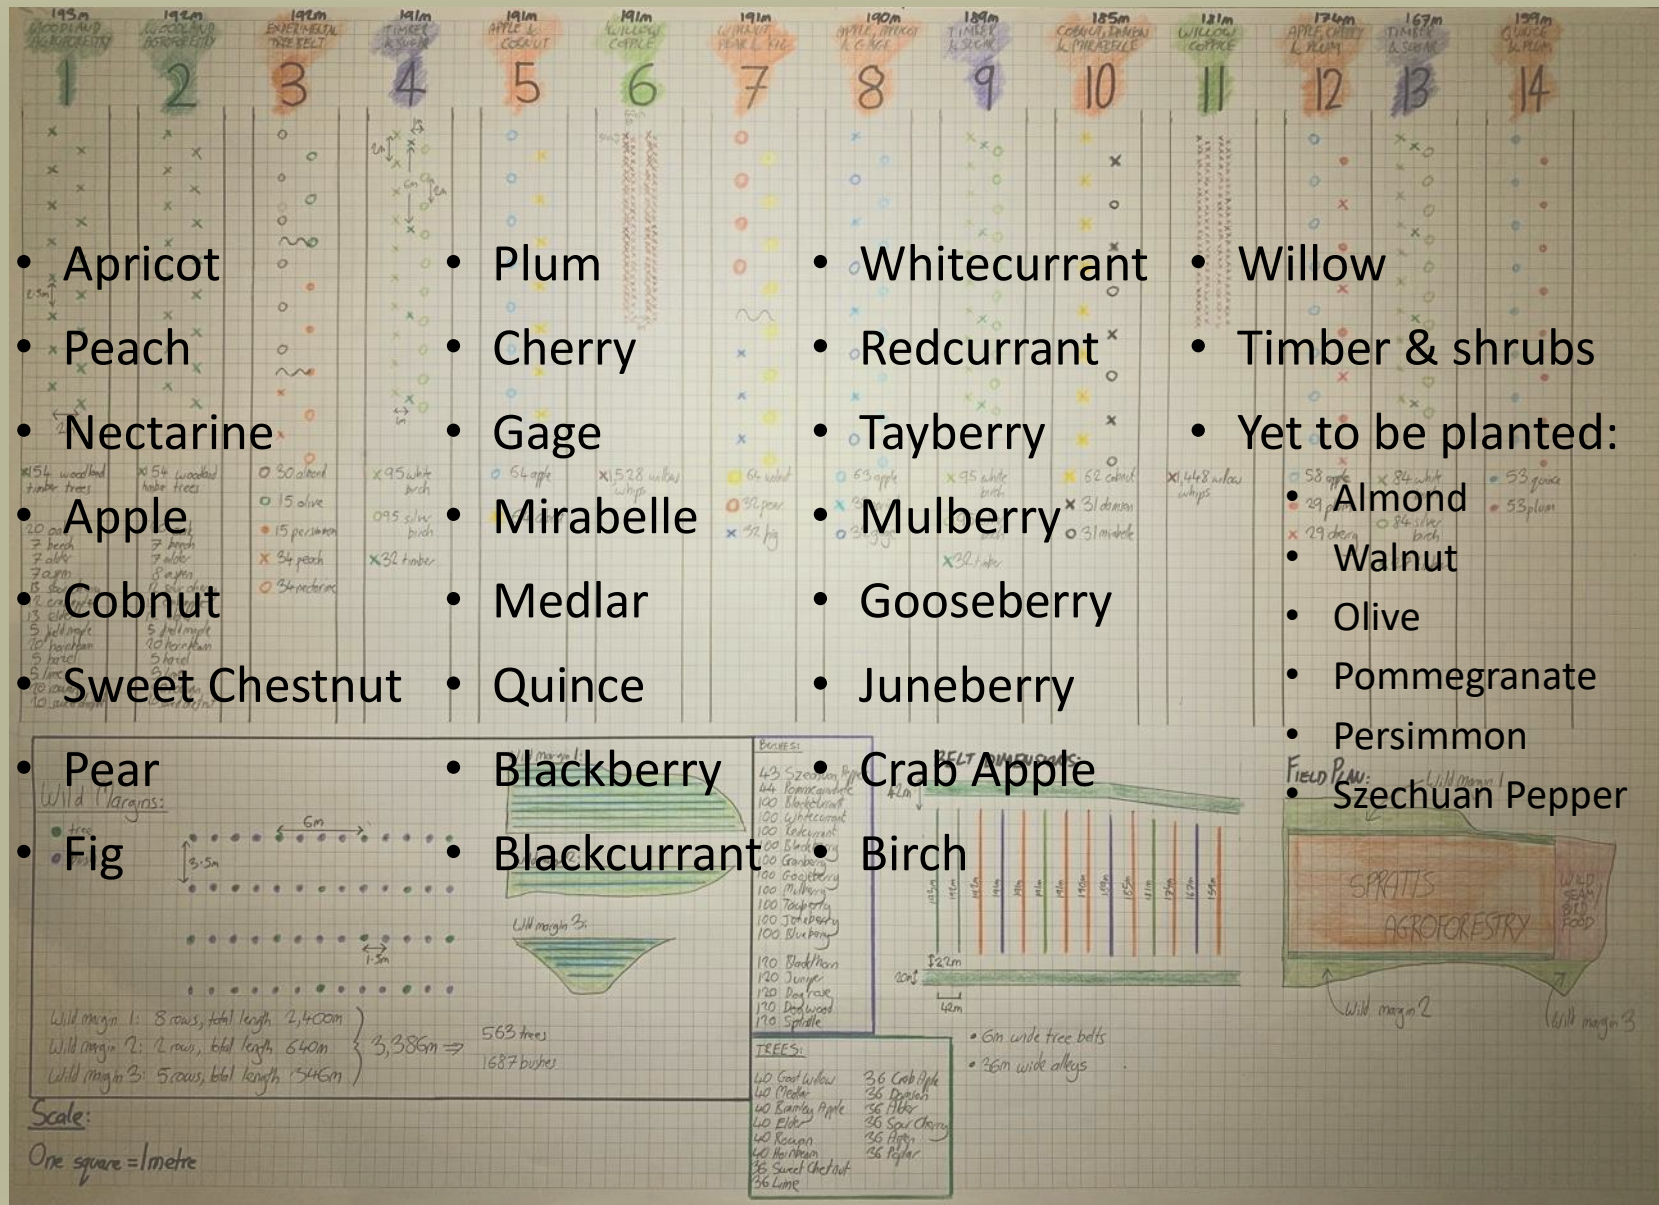 193m 192m 192m 191m 191m 191m 191m 190m 189m 185m 181m 174m 167m 159m
WOODLAND AGROFORESTRY
WOODLAND AGROFORESTRY
EXPERIMENTAL TREE BELT
TIMBER & SUGAR
APPLE & COBNUT
WILLOW COPPICE
WALNUT, PEAR & FIG
APPLE, APRICOT & GAGE
TIMBER & SUGAR
COBNUT, DAMSON & MIRABELLE
WILLOW COPPICE
APPLE, CHERRY & PLUM
TIMBER & SUGAR
QUINCE & PLUM
1 2 3 4 5 6 7 8 9 10 11 12 13 14
• Apricot
• Peach
• Nectarine
• Apple
• Cobnut
• Sweet Chestnut
• Pear
• Fig
• Plum
• Cherry
• Gage
• Mirabelle
• Medlar
• Quince
• Blackberry
• Blackcurrant
• Whitecurrant
• Redcurrant
• Tayberry
• Mulberry
• Gooseberry
• Juneberry
• Crab Apple
• Birch
• Willow
• Timber & shrubs
• Yet to be planted:
• Almond
• Walnut
• Olive
• Pommegranate
• Persimmon
• Szechuan Pepper
x 154 woodland
timber trees
7 beech
7 alder
x 154 woodland
timber trees
7 beech
7 alder
8 aspen
5 field maple
20 hornbeam
5 hazel
30 almond
15 olive
15 persimmon
x 34 peach
34 nectarine
x 95 white
birch
95 silver
birch
x 32 timber
64 apple
x 1,528 willow
whips
64 walnut
32 pear
x 32 fig
63 apple
x 95 white
birch
x 32 timber
x 62 cobnut
x 31 damson
31 mirabelle
x 1,448 willow
whips
58 apple
29 plum
x 29 cherry
x 84 white
birch
84 silver
birch
53 quince
53 plum
Wild Margins:
tree
6m
3.5m
1.5m
Wild margin 1:
Wild margin 3:
Wild margin 1: 8 rows, total length 2,400m
Wild margin 2: 2 rows, total length 640m
Wild margin 3: 5 rows, total length 346m
3,386m ⇒
563 trees
1687 bushes
Scale:
One square = 1 metre
BUSHES:
43 Szechuan Pepper
44 Pommegranate
100 Blackcurrant
100 Whitecurrant
100 Redcurrant
100 Blackberry
100 Cranberry
100 Gooseberry
100 Mulberry
100 Tayberry
100 Juneberry
100 Blueberry
120 Blackthorn
120 Juniper
120 Dog rose
120 Dogwood
120 Spindle
TREES:
40 Goat Willow
40 Medlar
40 Bramley Apple
40 Elder
40 Rowan
40 Hornbeam
36 Sweet Chetnut
36 Lime
36 Crab Apple
36 Damson
36 Alder
36 Spur Cherry
36 Aspen
36 Poplar
BELT DIMENSIONS:
42m
193m 192m 192m 191m 191m 191m 191m 190m 189m 185m 181m 174m 167m 159m
22m
20m
42m
• 6m wide tree belts
• 36m wide alleys
FIELD PLAN:
Wild margin 1
SPRATTS
AGROFORESTRY
WILD
BIRD
FOOD
Wild margin 2
Wild margin 3